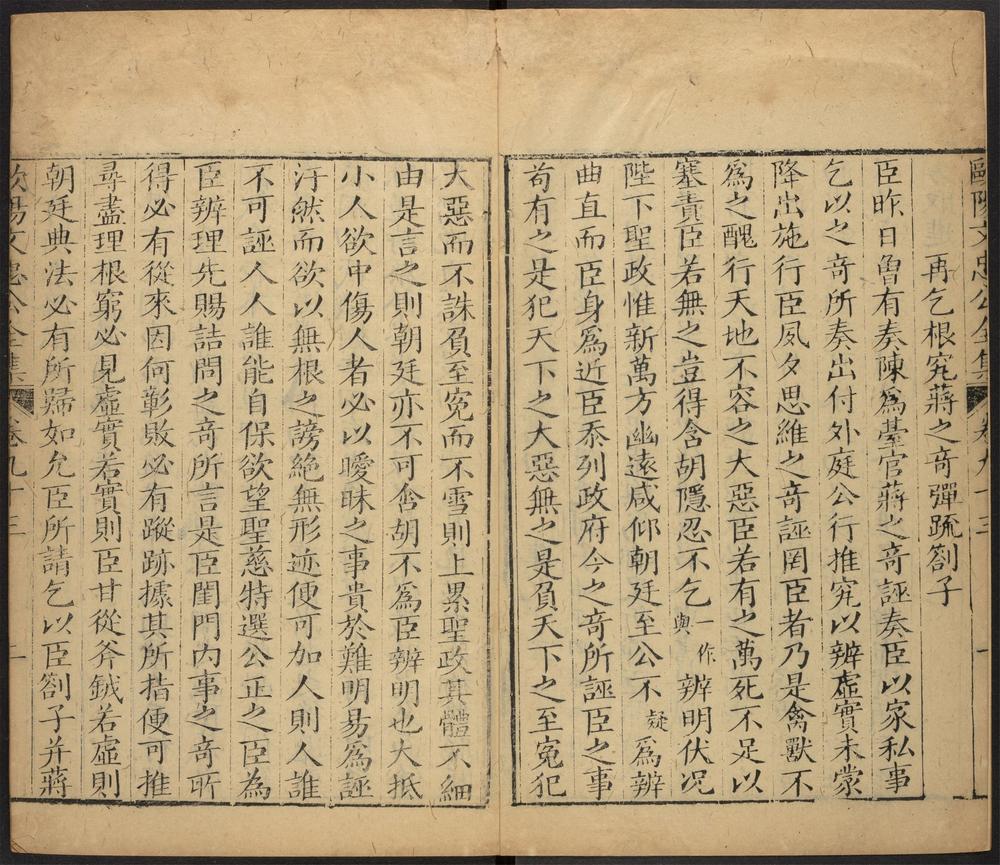 歐陽文忠公全集 卷九十三 一
再乞根究蔣之奇彈疏劄子
臣昨日曾有奏陳為臺官蔣之奇誣奏臣以家私事
乞以之奇所奏出付外庭公行推究以辨虛實未蒙
降出施行臣夙夕思維之奇誣罔臣者乃是禽獸不
為之醜行天地不容之大惡臣若有之萬死不足以
塞責臣若無之豈得含胡隱忍不乞一作與辨明伏况
陛下聖政惟新萬方幽遠咸仰朝廷至公不疑為辨
曲直而臣身為近臣忝列政府今之奇所誣臣之事
苟有之是犯天下之大惡無之是負天下之至冤犯
大惡而不誅負至冤而不雪則上累聖政其體不細
由是言之則朝廷亦不可含胡不為臣辨明也大抵
小人欲中傷人者必以曖昧之事貴於難明易為誣
汙然而欲以無根之謗絶無形迹便可加人則人誰
不可誣人人誰能自保欲望聖慈特選公正之臣為
臣辨理先賜詰問之奇所言是臣閨門内事之奇所
得必有從來因何彰敗必有蹤跡據其所指便可推
尋盡理根窮必見虛實若實則臣甘從斧鉞若虛則
朝廷典法必有所歸如允臣所請乞以臣劄子并蔣
歐陽文忠公全集 卷九十三 一